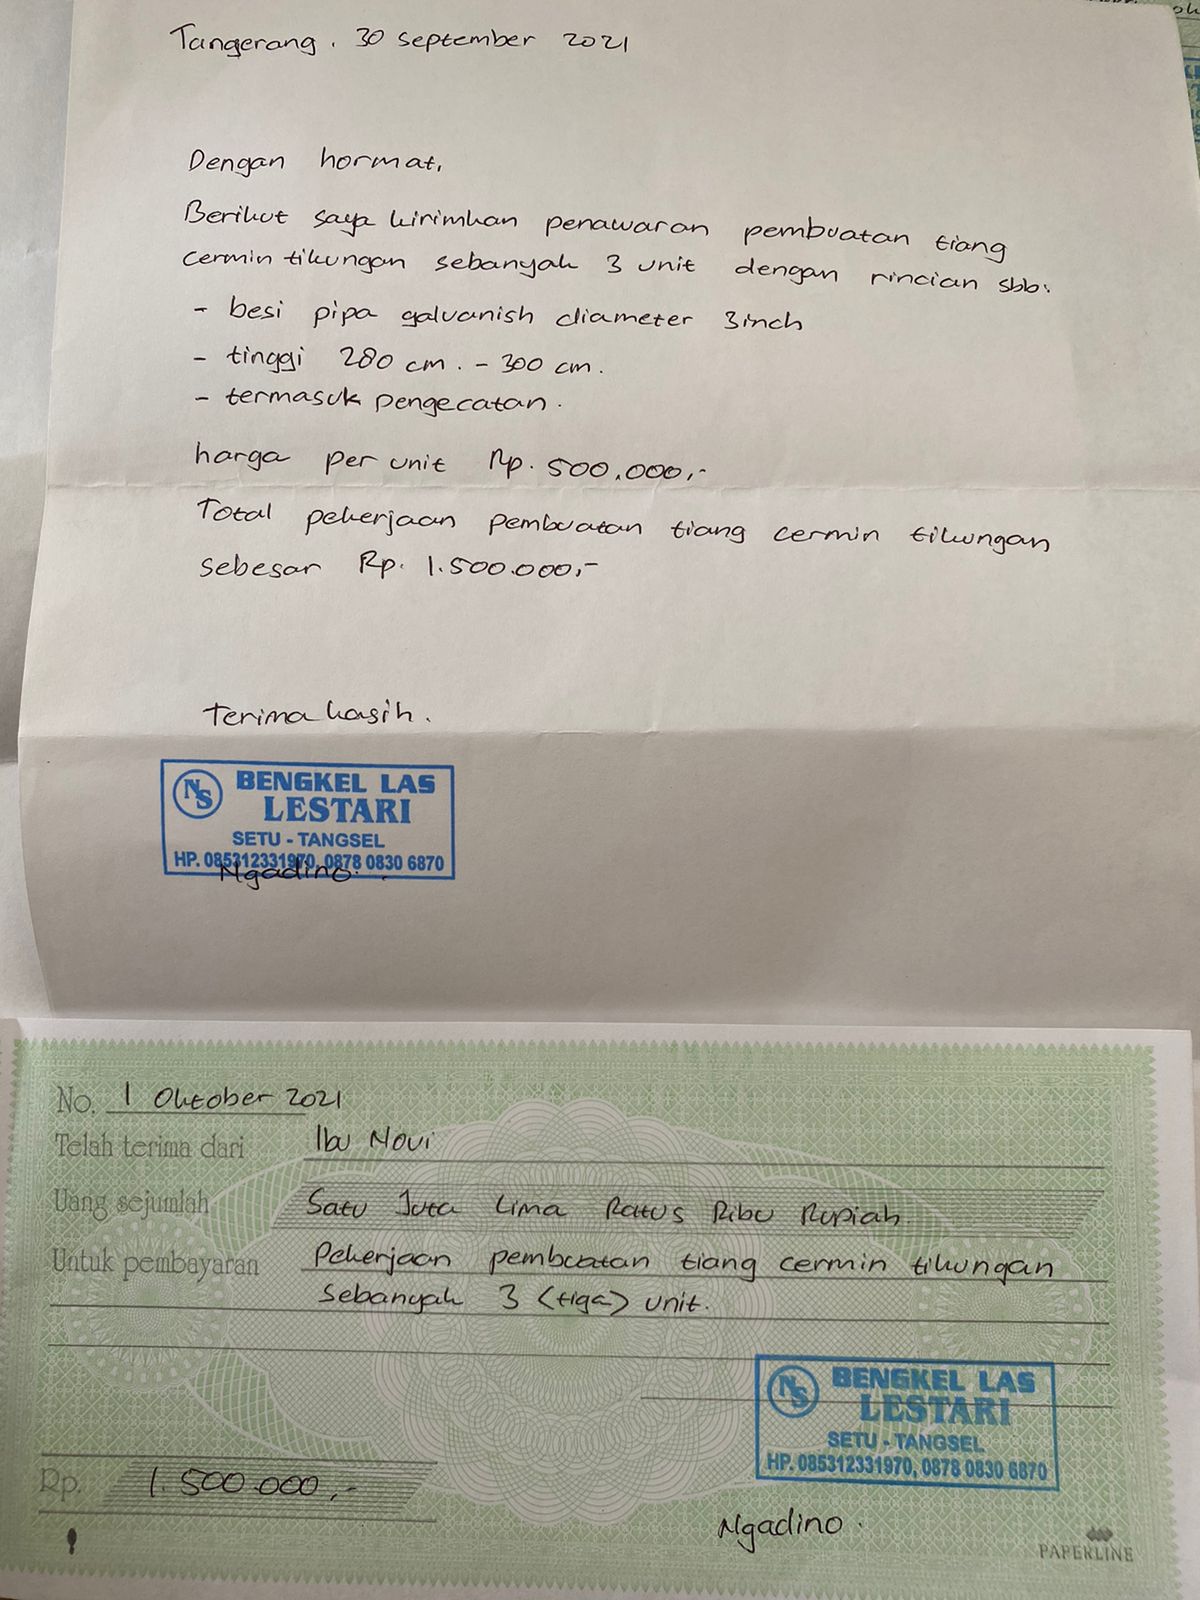 Tangerang, 30 september 2021
Dengan hormat,
Berikut saya kirimkan penawaran pembuatan tiang
cermin tikungan sebanyak 3 unit dengan rincian sbb:
- besi pipa galvanish diameter 3inch
- tinggi 280 cm. - 300 cm.
- termasuk pengecatan.
harga per unit Rp. 500.000,-
Total pekerjaan pembuatan tiang cermin tikungan
sebesar Rp. 1.500.000,-
Terima kasih.
NS BENGKEL LAS
LESTARI
SETU - TANGSEL
HP. 085312331970, 0878 0830 6870
Ngadino.
No. 1 Oktober 2021
Telah terima dari Ibu Novi
Uang sejumlah Satu Juta Lima Ratus Ribu Rupiah
Untuk pembayaran Pekerjaan pembuatan tiang cermin tikungan
sebanyak 3 (tiga) unit.
NS BENGKEL LAS
LESTARI
SETU - TANGSEL
HP. 085312331970, 0878 0830 6870
Rp. 1.500.000,-
Ngadino.
PAPERLINE